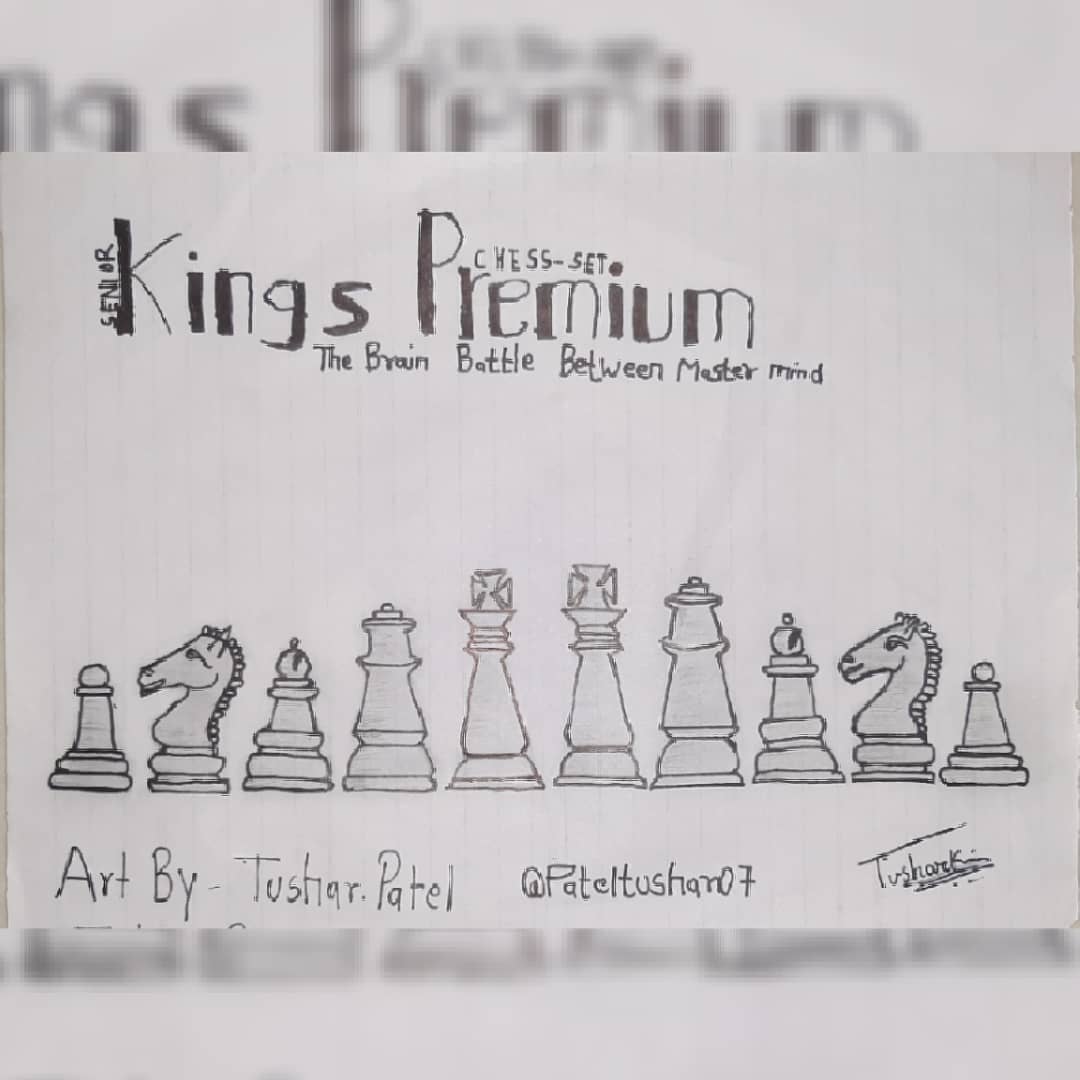 SENIOR
Kings Premium
CHESS-SET
The Brain Battle Between Master mind
Art By - Tushar. Patel
@Pateltushar07